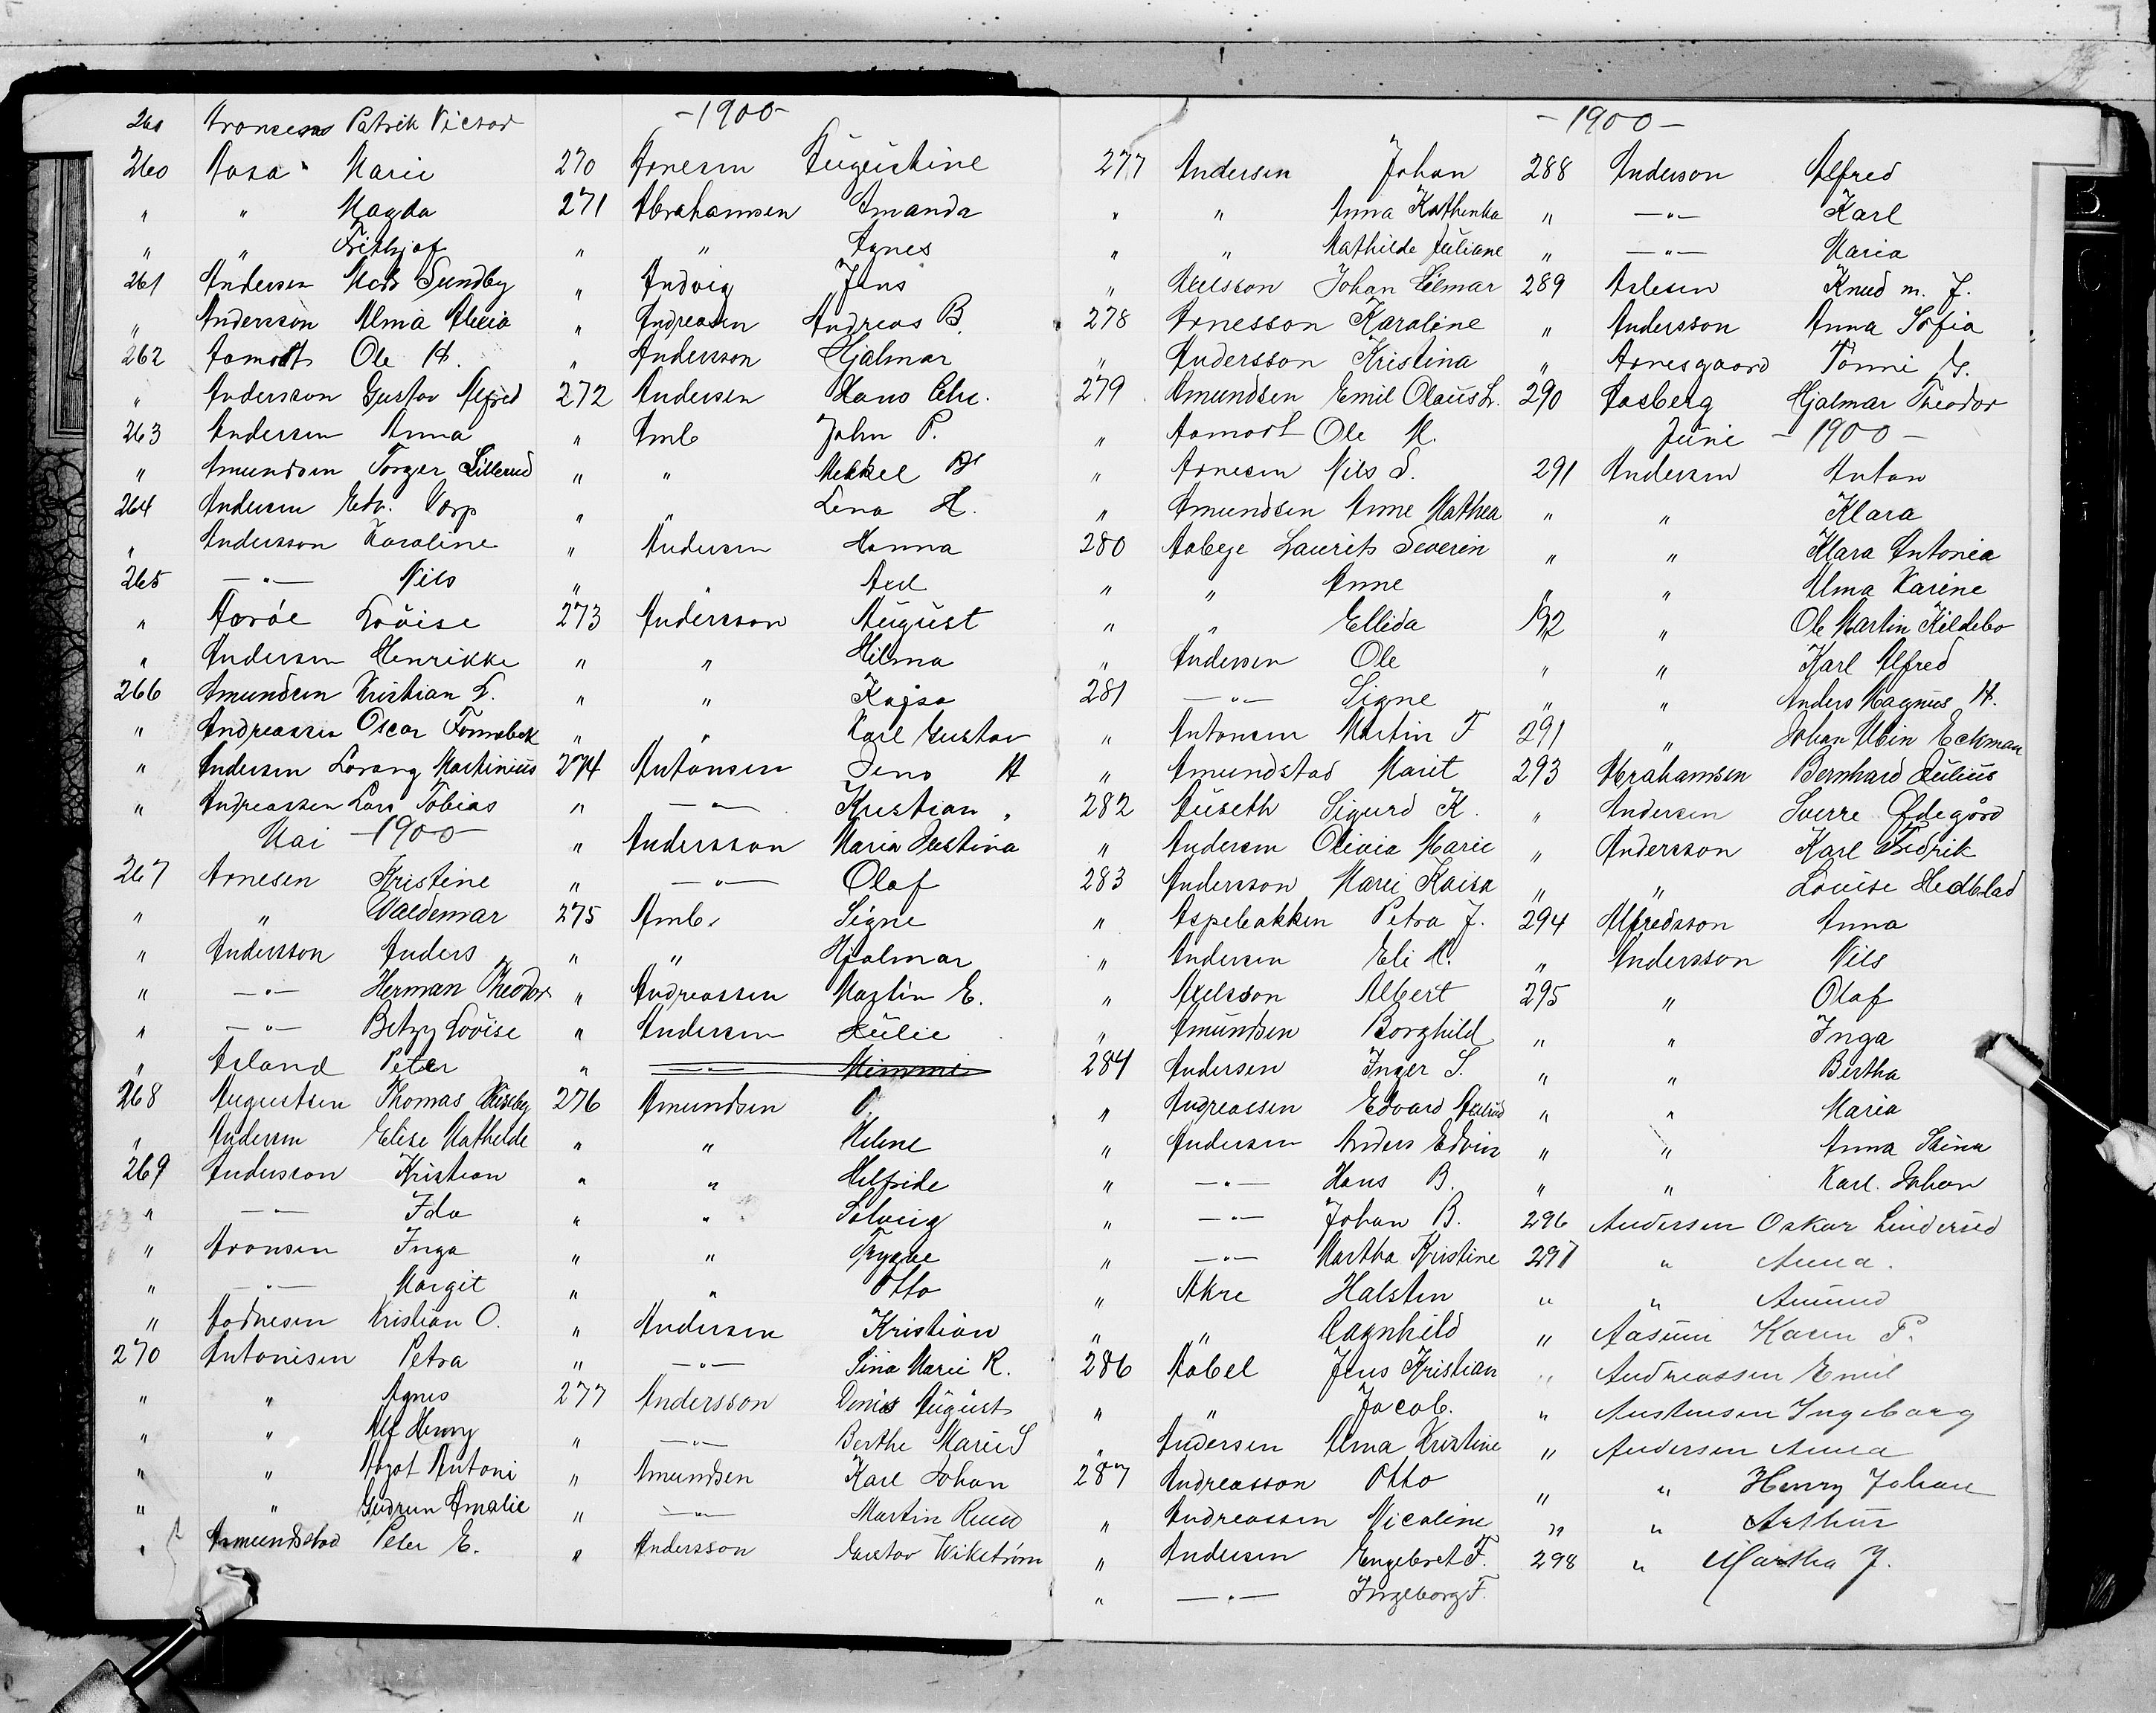 -1900-
260 Patrik Victor
260 Aasa Marie
" " Magda
" " Frithjof
261 Andersen Mads Sundby
" Andersson Alma Alicia
262 Aamodt Ole H.
" Andersson Gustav Alfred
263 Andersen Anna
" Amundsen Torger Lillerud
264 Andersen Edv. Varp
" Andersson Karoline
265 —"— Nils
" Aarøe Lovise
" Andersen Henrikke
266 Amundsen Kristian L.
" Andreassen Oscar
" Andersen Lorang Martinius
" Andreassen Lars Tobias
Mai -1900-
267 Arnesen Kristine
" " Valdemar
" Andersson Anders
" —"— Herman Theodor
" —"— Betzy Lovise
" Asland Peter
268 Augustsen Thomas
" Andersen Elise Mathilde
269 Andersson Kristian
" —"— Ida
" Aronsen Inga
" —"— Margit
" Aadnesen Kristian O.
270 Antonisen Petra
" " Agnes
" " Alf Henry
" " Aagot Antoni
" " Gudrun Amalie
" Asmundstad Peter E.
270 Arnesen Augustine
271 Abrahamsen Amanda
" " Agnes
" Andvig Jens
" Andreasen Andreas B.
" Andersson Hjalmar
272 Andersen Hans Chr.
" Amb John P.
" " Mekkel
" " Lena H.
" Andersen Hanna
" " Axel
273 Andersson August
" " Hilma
" " Kajsa
" " Karl Gustav
274 Antonsen Jens A
" —"— Kristian "
" Andersson Maria Justina
" —"— Olaf
275 Amb. Signe
" " Hjalmar
" Andreassen Martin E.
" Andersen Julie
" —"— Mimmi
276 Amundsen O.
" " Helene
" " Helfride
" " Solveig
" " Trygve
" " Otto
" Andersen Kristian
" —"— Sina Marie R.
277 Andersson Denis August
" —"— Berthe Marie S
" Amundsen Karl Johan
" —"— Martin Ruud
" Andersson Gustav Wikstrøm
-1900-
277 Andersen Johan
" " Anna Kathinka
" " Mathilde Juliane
" Axelsson Johan Hilmar
278 Arnesson Karoline
" Andersson Kristina
279 Amundsen Emil Olaus L.
" Aamodt Ole M.
" Arnesen Nils S.
" Amundsen Anne Mathea
280 Aabege Laurits Severin
" " Anne
" " Ellida
" Andersen Ole
281 —"— Signe
" Antonsen Martin F
" Amundstad Marit
282 Auseth Sigurd K.
" Andersen Olivia Marie
283 Andersson Mari Kaisa
" Aspebakken Petra J.
" Andersen Eli M.
" Axelsson Albert
" Amundsen Borghild
284 Andersen Inger S.
" Andreassen Edvard
" Andersen Anders Edvin
" —"— Hans B.
" —"— Johan B.
" —"— Martha Kristine
" Akre Halsten
" " Ragnhild
286 Aabel Jens Kristian
" " Jacob.
" Andersen Alma Kristine
287 Andreasson Otto
" Andreassen Nicoline
" Andersen Engebret F.
" —"— Ingeborg F.
288 Anderson Alfred
" —"— Karl
" —"— Maria
289 Aslesen Knud m. J.
" Andersson Anna Sofia
" Arnesgaard Tonni G.
290 Aasberg Hjalmar Theodor
Juni -1900-
291 Andersen Anton
" " Klara
" " Klara Antonia
" " Alma Karine
192 " Ole Martin Kildebo
" " Karl Alfred
" " Anders Magnus H.
291 " Johan Albin Eckman
293 Abrahamsen Bernhard Julius
" Andersen Sverre Ødegård
" Andersson Karl Fredrik
" " Louise Hedblad
294 Alfredsson Anna
" Andersson Nils
295 " Olaf
" " Inga
" " Bertha
" " Maria
" " Anna Stina
" " Karl Johan
296 Andersen Oskar Linderud
297 " Anna.
" " Amund
" Aasum Karen P.
" Andreassen Emil
" Austensen Ingeborg
" Andersen Anna
" " Henry Johan
" " Arthur
298 " Martha J.